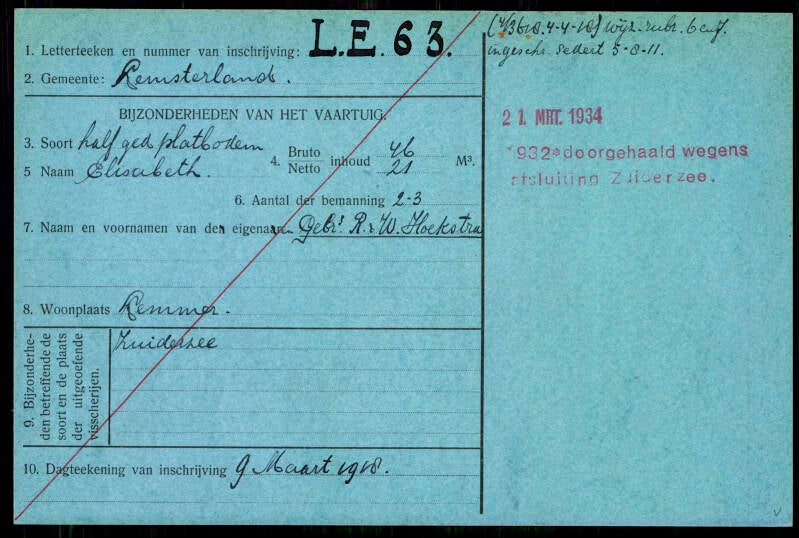 1. Letterteeken en nummer van inschrijving: L.E. 63.
2. Gemeente: Lemsterland.
BIJZONDERHEDEN VAN HET VAARTUIG.
3. Soort half ged platbodem
5 Naam Elisabeth.
4. Bruto Netto inhoud 46 21 M³.
6. Aantal der bemanning 2-3
7. Naam en voornamen van den eigenaren Gebrs R. & W. Hoekstra
8. Woonplaats Lemmer.
9. Bijzonderhe-
den betreffende de
soort en de plaats
der uitgeoefende
visscherijen.
Zuiderzee
10. Dagteekening van inschrijving 9 Maart 1918.
4-4-18) wijz. rubr. 6 en 7.
ingeschr. sedert 5-8-11.
21 MRT. 1934
1932 doorgehaald wegens
afsluiting Zuiderzee.